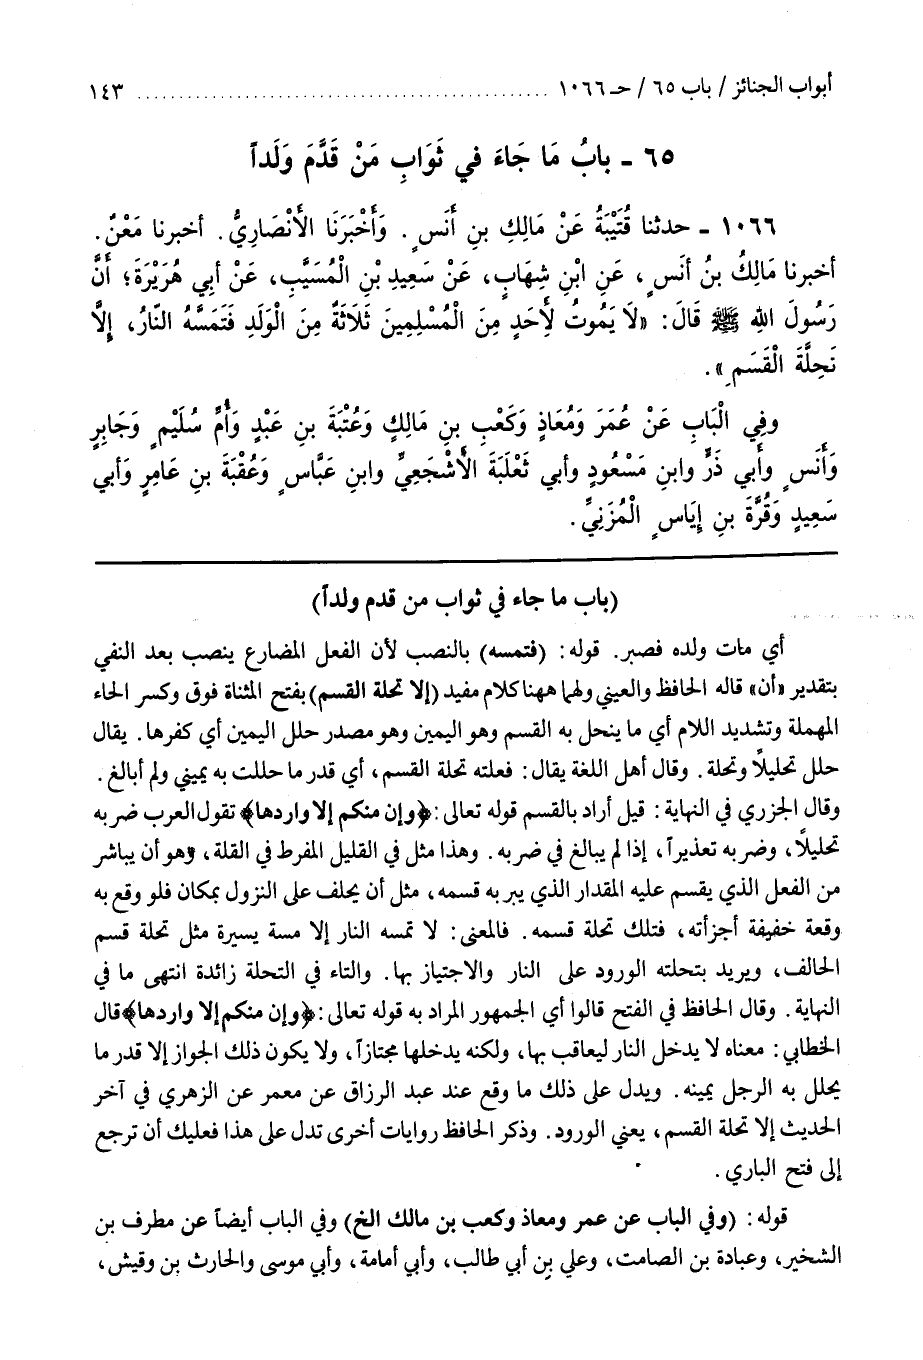 أبواب الجنائز / باب ٦٥ / حـ ١٠٦٦ ................................................ ١٤٣
٦٥ ـ بابُ مَا جَاءَ في ثَوَابِ مَنْ قَدَّمَ وَلَداً
١٠٦٦ ـ حدثنا قُتَيْبَةُ عَنْ مَالِكِ بنِ أَنَسٍ . وَأَخْبَرَنَا الأَنْصَارِيُّ . أخبرنا مَعْنٌ .
أخبرنا مَالِكُ بنُ أنَسٍ ، عَنِ ابْنِ شِهَابٍ، عَنْ سَعِيدِ بْنِ الْمُسَيَّبِ، عَنْ أبي هُرَيْرَةَ؛ أَنَّ
رَسُولَ اللهِ ﷺ قَالَ: «لَا يَمُوتُ لِأَحَدٍ مِنَ الْمُسْلِمِينَ ثَلَاثَةٌ مِنَ الْوَلَدِ فَتَمَسَّهُ النَّارُ، إِلَّا
تَحِلَّةَ الْقَسَمِ» .
وفِي الْبَابِ عَنْ عُمَرَ وَمُعَاذٍ وَكَعْبِ بنِ مَالِكٍ وَعُتْبَةَ بنِ عَبْدٍ وَأُمِّ سُلَيْمٍ وَجَابِرٍ
وَأَنَسٍ وأَبي ذَرٍّ وابنِ مَسْعُودٍ وأبي ثَعْلَبَةَ الأَشْجَعِيِّ وابنِ عَبَّاسٍ وَعُقْبَةَ بنِ عَامِرٍ وَأبي
سَعِيدٍ وَقُرَّةَ بنِ إِيَاسٍ الْمُزَنِيِّ .
(باب ما جاء في ثواب من قدم ولداً)
أي مات ولده فصبر. قوله: (فتمسه) بالنصب لأن الفعل المضارع ينصب بعد النفي
بتقدير «أن» قاله الحافظ والعيني ولهما ههنا كلام مفيد (إلا تحلة القسم) بفتح المثناة فوق وكسر الحاء
المهملة وتشديد اللام أي ما ينحل به القسم وهو اليمين وهو مصدر حلل اليمين أي كفرها. يقال
حلل تحليلاً وتحلة. وقال أهل اللغة يقال: فعلته تحلة القسم، أي قدر ما حللت به يميني ولم أبالغ.
وقال الجزري في النهاية: قيل أراد بالقسم قوله تعالى: ﴿وإن منكم إلا واردها﴾ تقول العرب ضربه
تحليلاً، وضربه تعذيراً، إذا لم يبالغ في ضربه. وهذا مثل في القليل المفرط في القلة، وهو أن يباشر
من الفعل الذي يقسم عليه المقدار الذي يبر به قسمه، مثل أن يحلف على النزول بمكان فلو وقع به
وقعة خفيفة أجزأته، فتلك تحلة قسمه. فالمعنى: لا تمسه النار إلا مسة يسيرة مثل تحلة قسم
الحالف، ويريد بتحلته الورود على النار والاجتياز بها. والتاء في التحلة زائدة انتهى ما في
النهاية. وقال الحافظ في الفتح قالوا أي الجمهور المراد به قوله تعالى: ﴿وإن منكم إلا واردها﴾ قال
الخطابي: معناه لا يدخل النار ليعاقب بها، ولكنه يدخلها مجتازاً، ولا يكون ذلك الجواز إلا قدر ما
يحلل به الرجل يمينه. ويدل على ذلك ما وقع عند عبد الرزاق عن معمر عن الزهري في آخر
الحديث إلا تحلة القسم، يعني الورود. وذكر الحافظ روايات أخرى تدل على هذا فعليك أن ترجع
إلى فتح الباري.
قوله: (وفي الباب عن عمر ومعاذ وكعب بن مالك الخ) وفي الباب أيضاً عن مطرف بن
الشخير، وعبادة بن الصامت، وعلي بن أبي طالب، وأبي أمامة، وأبي موسى والحارث بن وقيش،